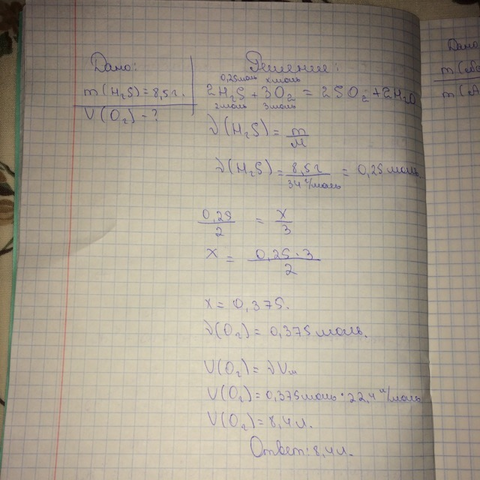 Дано:
m(H₂S)=8,5г.
V(O₂)-?
Решение:
0,25моль xмоль
2H₂S+3O₂=2SO₂+2H₂O
2моль 3моль
ν(H₂S)=m/M
ν(H₂S)=8,5г/34г/моль=0,25моль
0,25/2=x/3
x=0,25·3/2
x=0,375.
ν(O₂)=0,375моль.
V(O₂)=νVm
V(O₂)=0,375моль·22,4л/моль
V(O₂)=8,4л.
Ответ:8,4л.
Дано